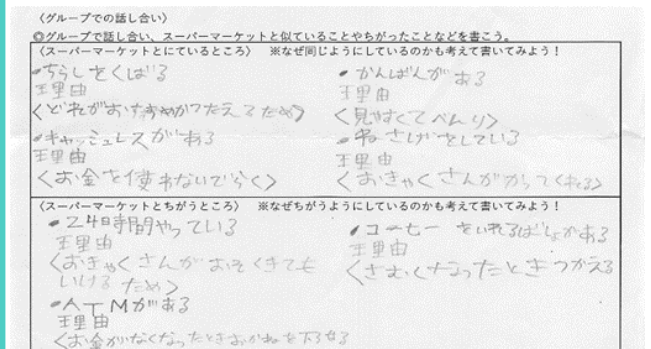 〈グループでの話し合い〉
◎グループで話し合い、スーパーマーケットと似ていることやちがったことなどを書こう。
〈スーパーマーケットとにているところ〉 ※なぜ同じようにしているのかも考えて書いてみよう！
•ちらしをくばる
理由
〈どれがおすすめかつたえるため〉
•キャッシュレスがある
理由
〈お金を使わないでらく〉
•かんばんがある
理由
〈見やすくてべんり〉
•ねさげをしている
理由
〈おきゃくさんがかってくれる〉
〈スーパーマーケットとちがうところ〉 ※なぜちがうようにしているのかも考えて書いてみよう！
•24時間やっている
理由
〈おきゃくさんがおそくきても
いけるため〉
•ATMがある
理由
〈お金がなくなったときおかねを下ろせる
•コーヒーをいれるばしょがある
理由
〈さむくなったときつかえる